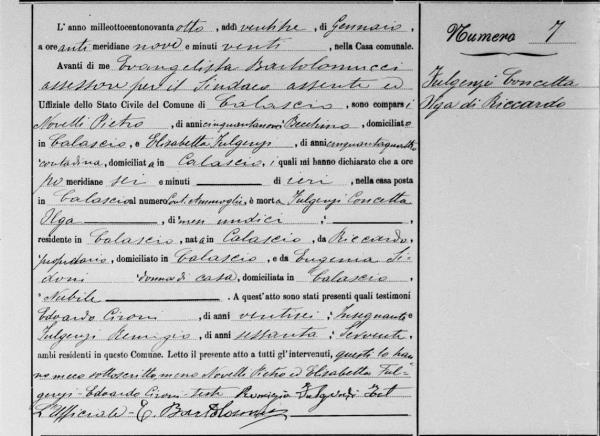 L' anno milleottocentonovanta otto, addì ventitre, di Gennaio,
a ore anti meridiane nove e minuti venti, nella Casa comunale.
Avanti di me Evangelista Bartolomucci
assessore per il Sindaco assente ed
Uffiziale dello Stato Civile del Comune di Calascio, sono comparsi
Novelli Pietro, di anni cinquantanove Becchino, domiciliato
in Calascio, e Elisabetta Fulgenzi, di anni cinquantaquattro
contadina, domiciliata in Calascio, i quali mi hanno dichiarato che a ore
po meridiane sei e minuti di ieri, nella casa posta
in Calascio al numero è morta Fulgenzi Concetta
Olga, di mesi undici,
residente in Calascio, nata in Calascio, da Riccardo,
propietario, domiciliato in Calascio, e da Eugenia
donna di casa, domiciliata in Calascio,
Nubile. A quest'atto sono stati presenti quali testimoni
Edoardo Cironi, di anni ventisei, Insegnante e
Fulgenzi Remigio, di anni sessanta, Servente,
ambi residenti in questo Comune. Letto il presente atto a tutti gl'intervenuti, questi lo han
no meco sottoscritto meno Novelli Pietro ed Elisabetta Ful-
genzi - Edoardo Cironi - teste Remigio Fulgenzi Tet
L'Uffiziale - E. Bartolomucci
Numero 7
Fulgenzi Concetta
Olga di Riccardo